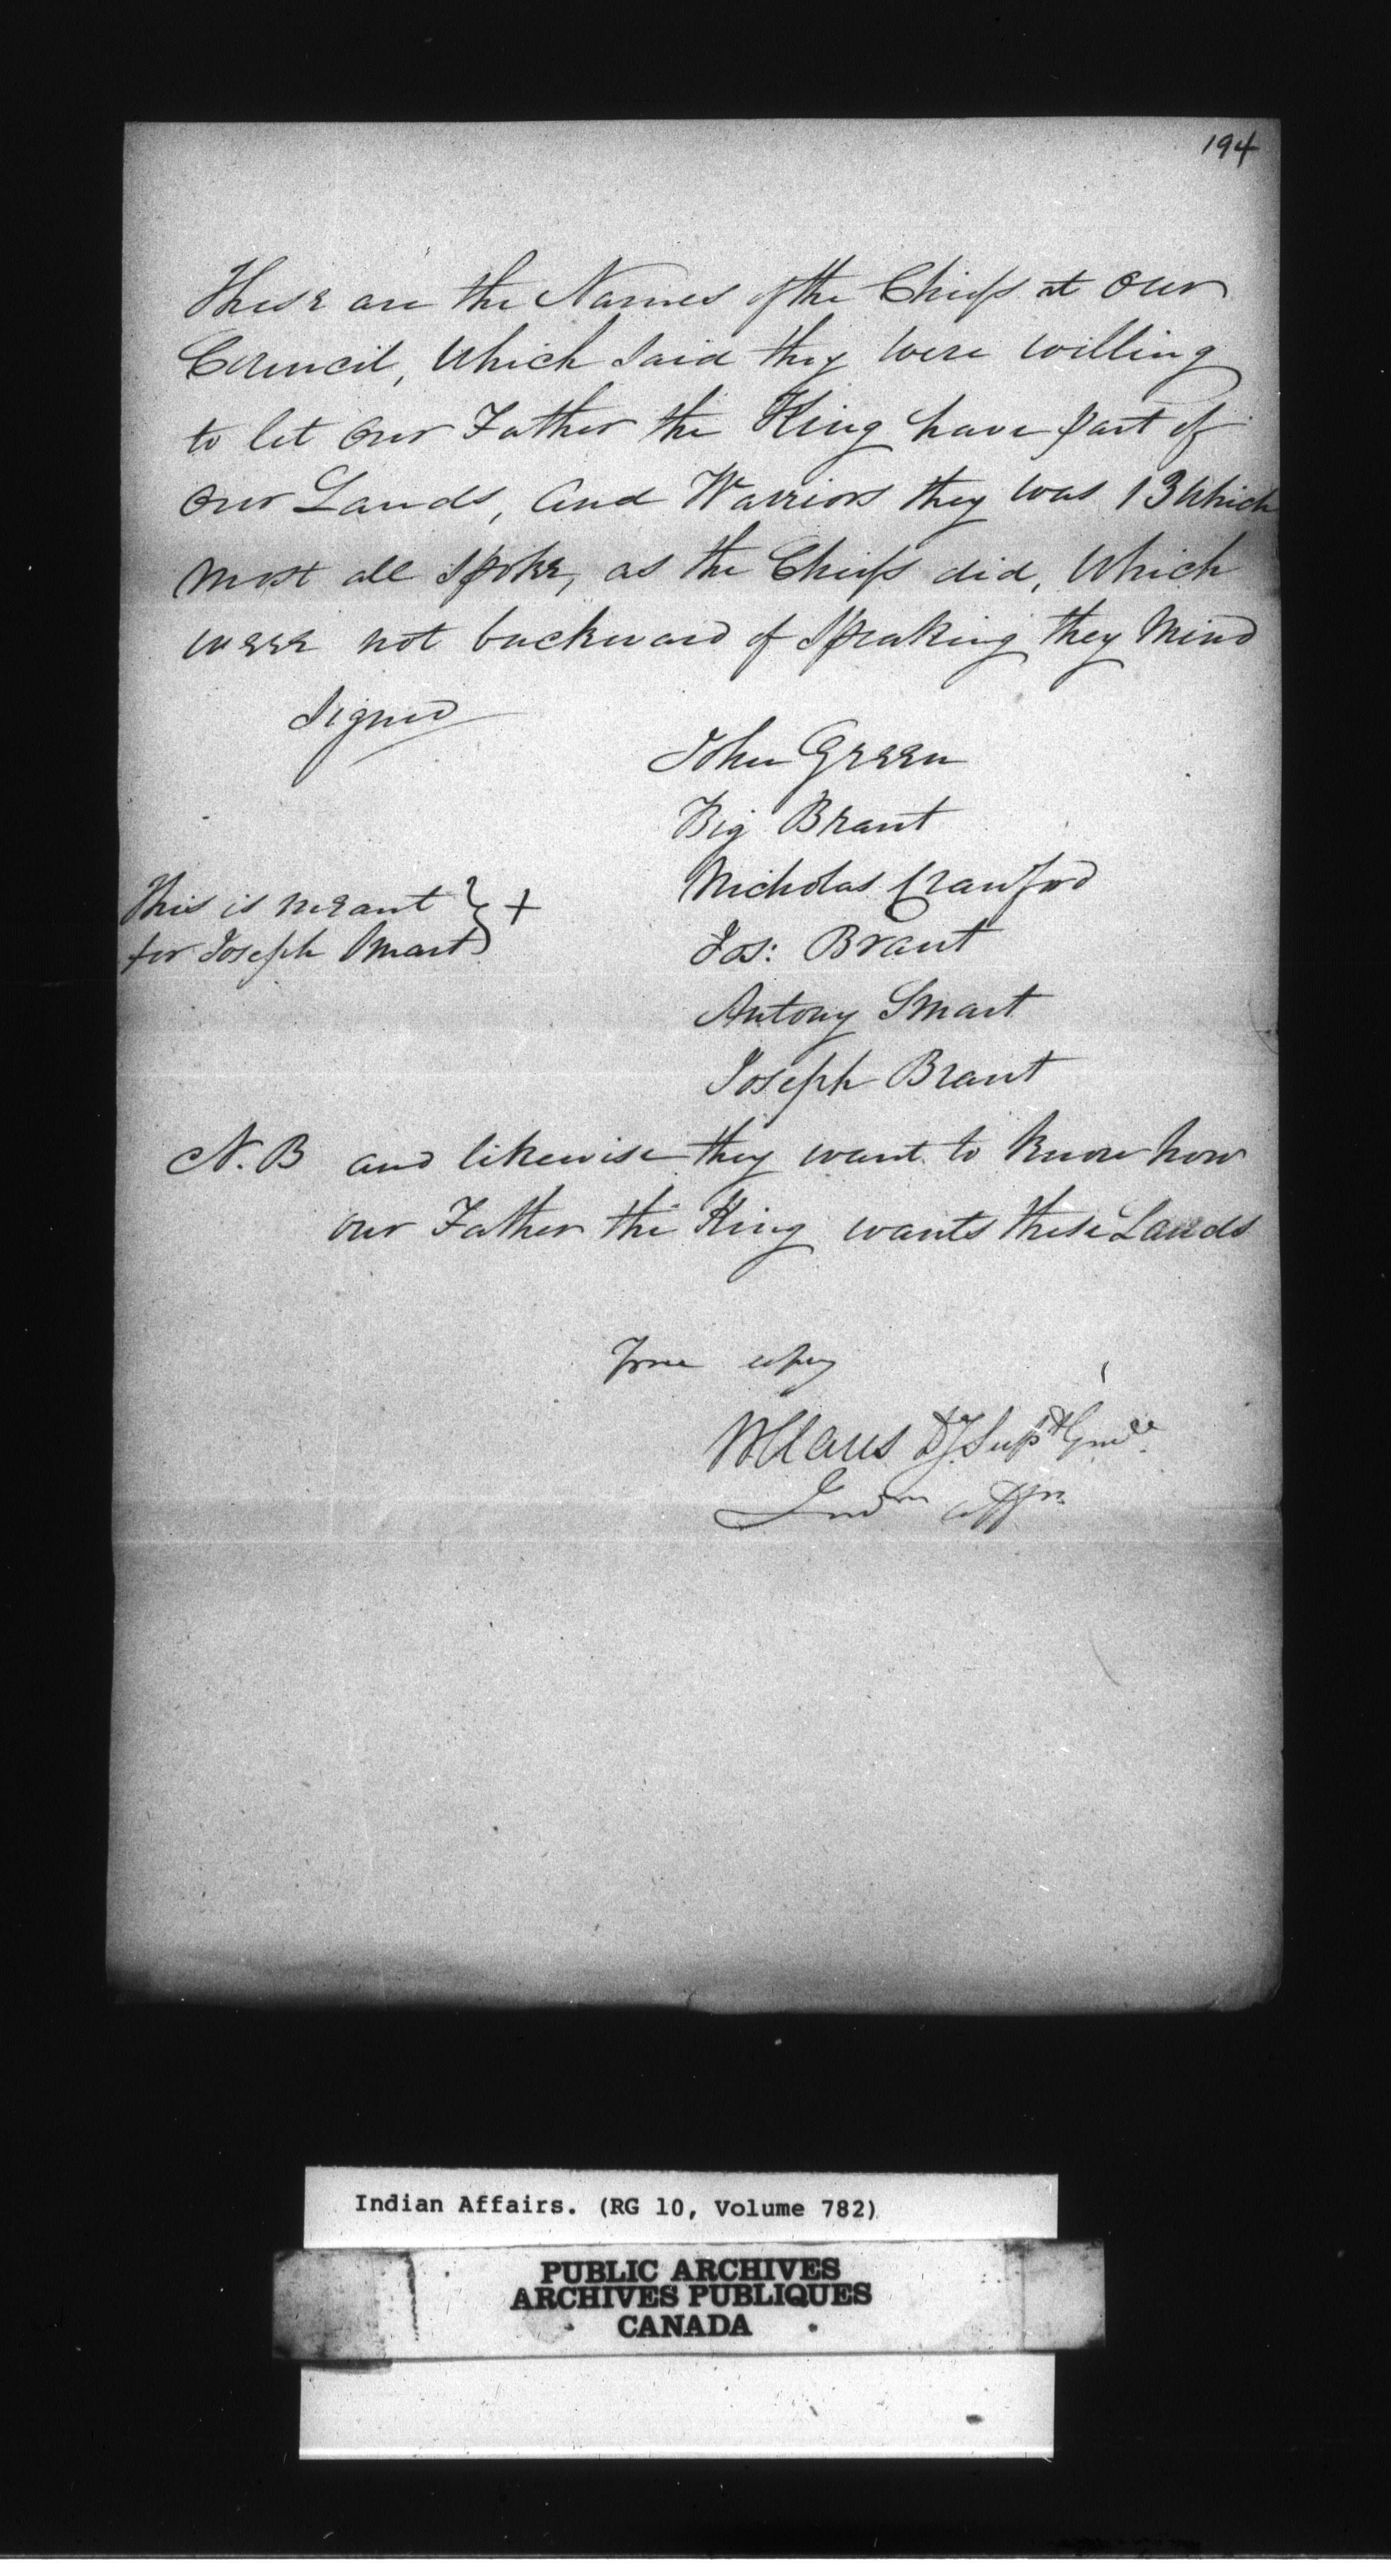 194
These are the Names of the Chiefs at our
Council, Which said they were willing
to let our Father the King have part of
our Lands, and Warriors they was 13 Which
most all spoke, as the Chiefs did, Which
were not backward of Speaking they Mind
Signed
John Green
Big Brant
Nicholas Crawford
This is meant } +
for Joseph Smart
Jos: Brant
Antony Smart
Joseph Brant
N.B and likewise they want to know how
our Father the King wants these Lands
True copy
W Claus Dy. Supt Genl
Indn Affrs
Indian Affairs. (RG 10, Volume 782)
PUBLIC ARCHIVES
ARCHIVES PUBLIQUES
CANADA